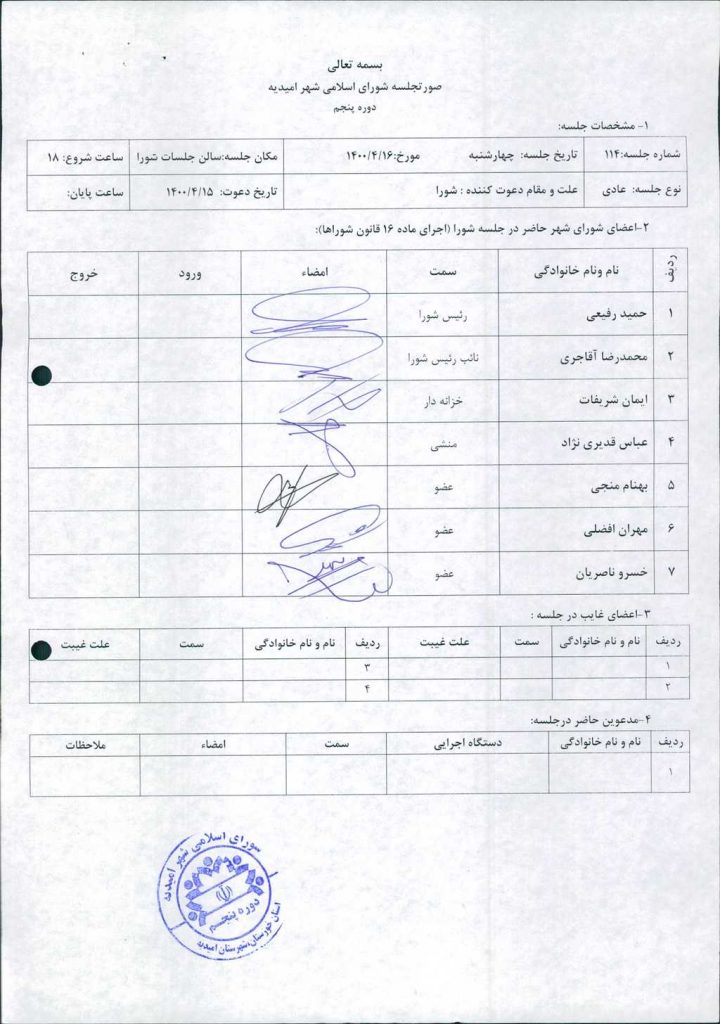 بسمه تعالی
صورتجلسه شورای اسلامی شهر امیدیه
دوره پنجم
۱- مشخصات جلسه:
شماره جلسه:۱۱۴ تاریخ جلسه: چهارشنبه مورخ:۱۴۰۰/۴/۱۶ مکان جلسه:سالن جلسات شورا ساعت شروع: ۱۸
نوع جلسه: عادی علت و مقام دعوت کننده : شورا تاریخ دعوت: ۱۴۰۰/۴/۱۵ ساعت پایان:
۲-اعضای شورای شهر حاضر در جلسه شورا (اجرای ماده ۱۶ قانون شوراها):
ردیف نام ونام خانوادگی سمت امضاء ورود خروج
۱ حمید رفیعی رئیس شورا
۲ محمدرضا آقاجری نائب رئیس شورا
۳ ایمان شریفات خزانه دار
۴ عباس قدیری نژاد منشی
۵ بهنام منجی عضو
۶ مهران افضلی عضو
۷ خسرو ناصریان عضو
۳-اعضای غایب در جلسه :
ردیف نام و نام خانوادگی سمت علت غیبت ردیف نام و نام خانوادگی سمت علت غیبت
۱ ۳
۲ ۴
۴-مدعوین حاضر درجلسه:
ردیف نام و نام خانوادگی دستگاه اجرایی سمت امضاء ملاحظات
۱
شورای اسلامی شهر امیدیه
دوره پنجم
استان خوزستان،شهرستان امیدیه